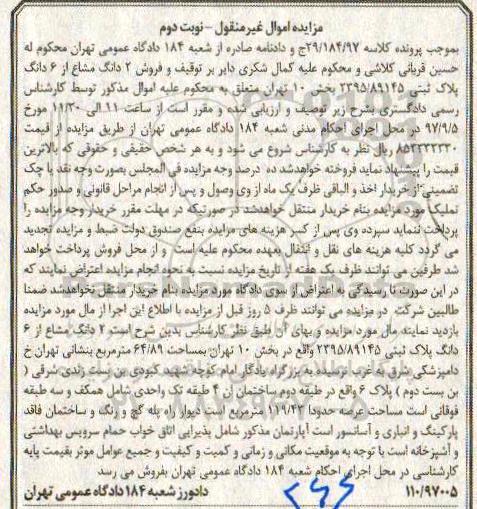 مزایده اموال غیر منقول - نوبت دوم
بموجب پرونده کلاسه ۲۹/۱۸۴/۹۷ج و دادنامه صادره از شعبه ۱۸۴ دادگاه عمومی تهران محکوم له
حسین قربانی کلاشی و محکوم علیه کمال شکری دایر بر توقیف و فروش ۲ دانگ مشاع از ۶ دانگ
پلاک ثبتی ۲۳۹۵/۸۹۱۴۵ بخش ۱۰ تهران متعلق به محکوم علیه اموال مذکور توسط کارشناس
رسمی دادگستری بشرح زیر توصیف و ارزیابی شده و مقرر است از ساعت ۱۱ الی ۱۱/۳۰ مورخ
۹۷/۹/۵ در محل اجرای احکام مدنی شعبه ۱۸۴ دادگاه عمومی تهران از طریق مزایده از قیمت
۸۵۳۳۳۳۳۳۰ ریال نظر به کارشناس شروع می شود و به هر شخص حقیقی و حقوقی که بالاترین
قیمت را پیشنهاد نماید فروخته خواهدشد ده درصد وجه مزایده فی المجلس بصورت وجه نقد یا چک
تضمینی از خریدار اخذ و الباقی ظرف یک ماه از وی وصول و پس از انجام مراحل قانونی و صدور حکم
تملیک مورد مزایده بنام خریدار منتقل خواهدشد در صورتیکه در مهلت مقرر خریدار وجه مزایده را
پرداخت ننماید سپرده وی پس از کسر هزینه های مزایده بنفع صندوق دولت ضبط و مزایده تجدید
می گردد کلیه هزینه های نقل و انتقال بعهده محکوم علیه است و از محل فروش پرداخت خواهد
شد طرفین می توانند ظرف یک هفته از تاریخ مزایده نسبت به نحوه انجام مزایده اعتراض نمایند که
در این صورت تا رسیدگی به اعتراض از سوی دادگاه مورد مزایده بنام خریدار منتقل نخواهدشد ضمنا
طالبین شرکت در مزایده می توانند ظرف ۵ روز قبل از مزایده با اطلاع این اجرا از مال مورد مزایده
بازدید نمایند. مال مورد مزایده و بهای آن طبق نظر کارشناس بدین شرح است. ۲ دانگ مشاع از ۶
دانگ پلاک ثبتی ۲۳۹۵/۸۹۱۴۵ واقع در بخش ۱۰ تهران بمساحت ۶۴/۸۹ مترمربع بنشانی تهران خ
دامپزشکی شرق به غرب نرسیده به بزرگراه یادگار امام کوچه شهید کبودی بن بست زندی شرقی (
بن بست دوم ) پلاک ۶ واقع در طبقه دوم ساختمان ان ۴ طبقه تک واحدی شامل همکف و سه طبقه
فوقانی است مساحت عرصه حدودا ۱۱۹/۴۲ مترمربع است دیوار راه پله گچ و رنگ و ساختمان فاقد
پارکینگ و انباری و آسانسور است آپارتمان مذکور شامل پذیرایی اتاق خواب حمام سرویس بهداشتی
و آشپزخانه است با توجه به موقعیت مکانی و زمانی و کمیت و کیفیت و جمیع عوامل موثر بقیمت پایه
کارشناسی در محل اجرای احکام شعبه ۱۸۴ دادگاه عمومی تهران بفروش می رسد
۱۱۰/۹۷۰۰۵ دادورز شعبه ۱۸۴ دادگاه عمومی تهران